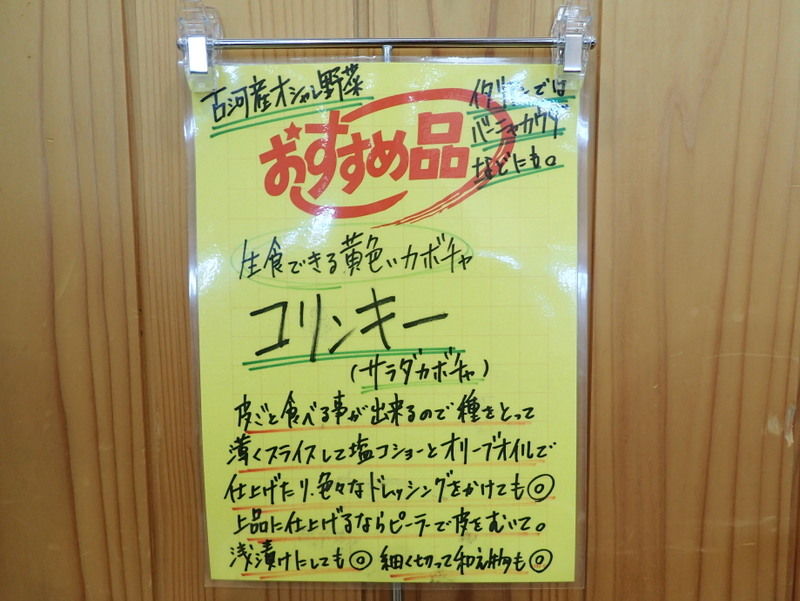 古河産オシャレ野菜
イタリアンでは
バーニャカウダ
などにも。
おすすめ品
生食できる黄色いカボチャ
コリンキー
(サラダカボチャ)
皮ごと食べる事が出来るので種をとって
薄くスライスして塩コショーとオリーブオイルで
仕上げたり、色々なドレッシングをかけても◎
上品に仕上げるならピーラーで皮をむいて。
浅漬けにしても◎ 細く切って和え物も◎